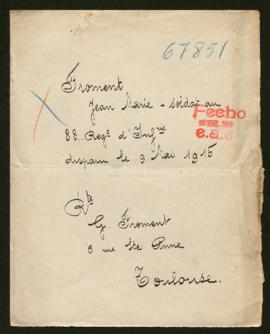 67851
Froment
Jean Marie - soldat au
88. Regt d'Infrie
disparu le 9 Mai 1915
Fecho
e.a.e
Rte
G. Froment
3 rue Ste Anne
Toulouse.